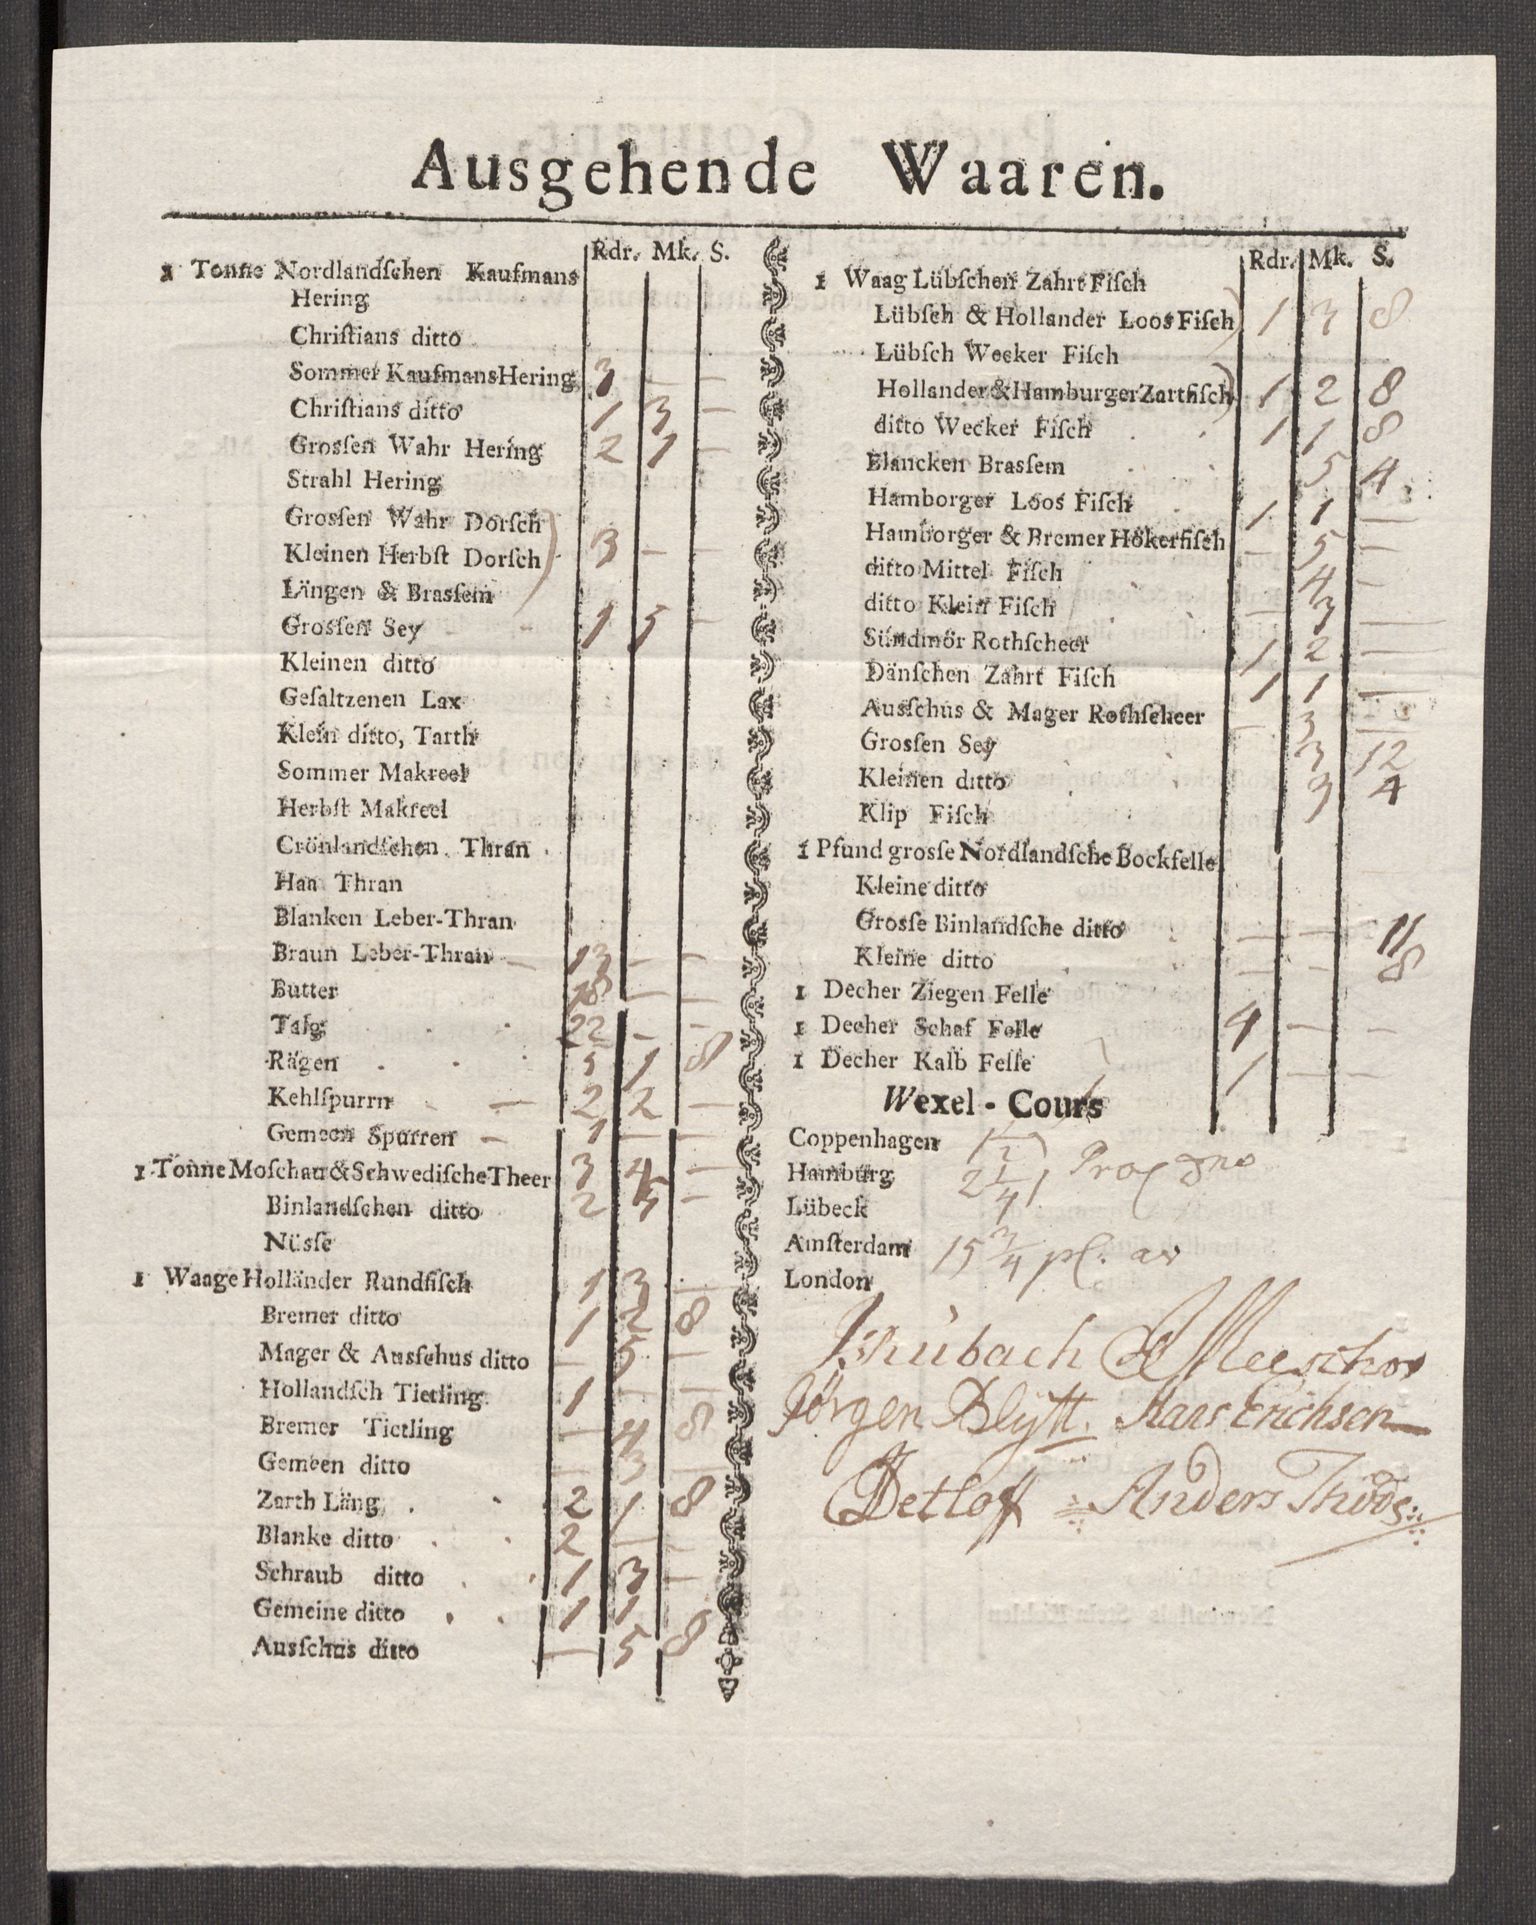 Ausgehende Waaren.
Rdr. Mk. S.
1 Tonne Nordlandſchen Kaufmans
Hering
Chriſtians ditto
Sommer Kaufmans Hering 3 — —
Chriſtians ditto 1 3 —
Groſſen Wahr Hering 2 1 —
Strahl Hering
Groſſen Wahr Dorſch
Kleinen Herbſt Dorſch 3 — —
Längen & Braſſem
Groſſen Sey 1 5 —
Kleinen ditto
Geſaltzenen Lax
Klein ditto, Tarth
Sommer Makreel
Herbſt Makreel
Crönlandſchen Thran
Haa Thran
Blanken Leber-Thran
Braun Leber-Thran — 13 — —
Butter 18 — —
Talg 22 — —
Rägen 5 1 8
Kehlſpurrn — 2 2 —
Gemeen Spurren — 1 — —
1 Tonne Moſchau & Schwediſche Theer 3 4 —
Binlandſchen ditto 2 5 —
Nüſſe
1 Waage Holländer Rundfiſch 1 3 —
Bremer ditto 1 2 8
Mager & Ausſchus ditto — 5 —
Hollandſch Tietling 1 — —
Bremer Tietling — 4 8
Gemeen ditto — 3 —
Zarth Läng 2 1 8
Blanke ditto 2 — —
Schraub ditto 1 3 —
Gemeine ditto 1 1 —
Ausſchus ditto — 5 8
Rdr. Mk. S.
1 Waag Lübſchen Zahrt Fiſch
Lübſch & Hollander Loos Fiſch 1 3 8
Lübſch Wecker Fiſch
Hollander & Hamburger Zartfiſch 1 2 8
ditto Wecker Fiſch 1 1 8
Blancken Braſſem 5 4
Hamborger Loos Fiſch 1 1 —
Hamborger & Bremer Hökerfiſch — 5 —
ditto Mittel Fiſch 4 —
ditto Klein Fiſch — 3 —
Sündmör Rothſcheer 1 2 —
Dänſchen Zahrt Fiſch 1 1 —
Ausſchus & Mager Rothſcheer — 3 —
Groſſen Sey 3 12
Kleinen ditto 3 4
Klip Fiſch
1 Pfund groſſe Nordlandſche Bockfelle
Kleine ditto
Groſſe Binlandſche ditto — — 11
Kleine ditto — — 8
1 Decher Ziegen Felle
1 Decher Schaf Felle 4 — —
1 Decher Kalb Felle 1 — —
Wexel - Cours
Coppenhagen 1 1/2
Hamburg 2 1/4
Lübeck
Amſterdam 15 3/4
London
Meeschor
Jörgen Blÿtt. Hans Erichsen
Detloff Anders Thöös